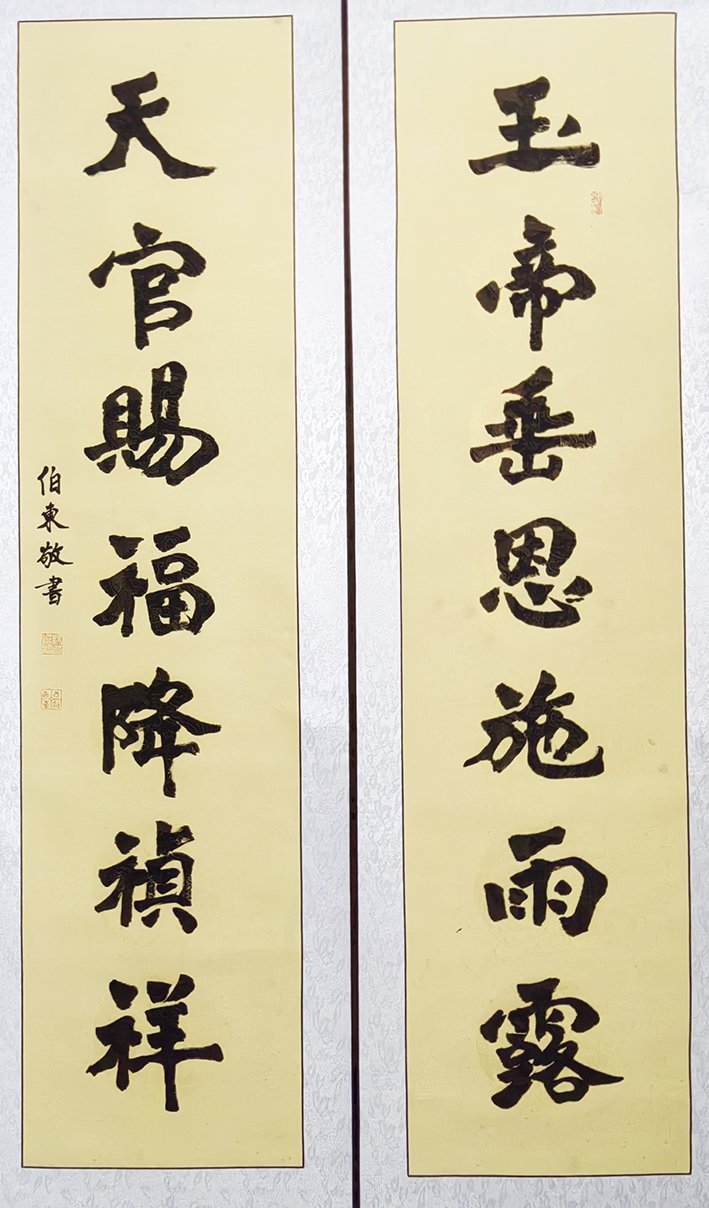 玉帝垂恩施雨露
天官賜福降禎祥
伯東敬書